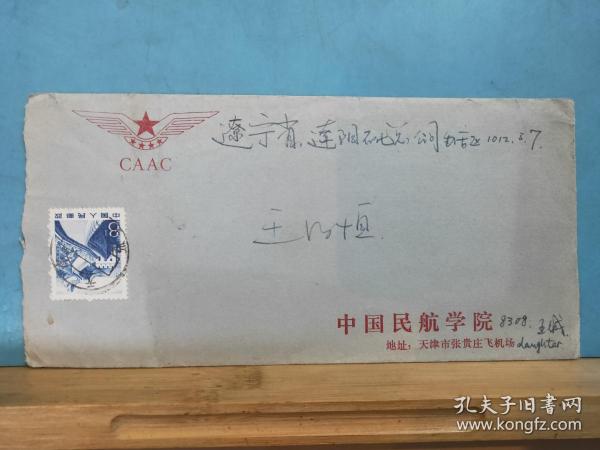 CAAC
遼宁省 遼阳石化总公司 1012.5.7
8
中国人民邮政
王
恒
中国民航学院 8308. 王
地址：天津市张贵庄飞机场 daughter
孔夫子旧书网
www.kongfz.com